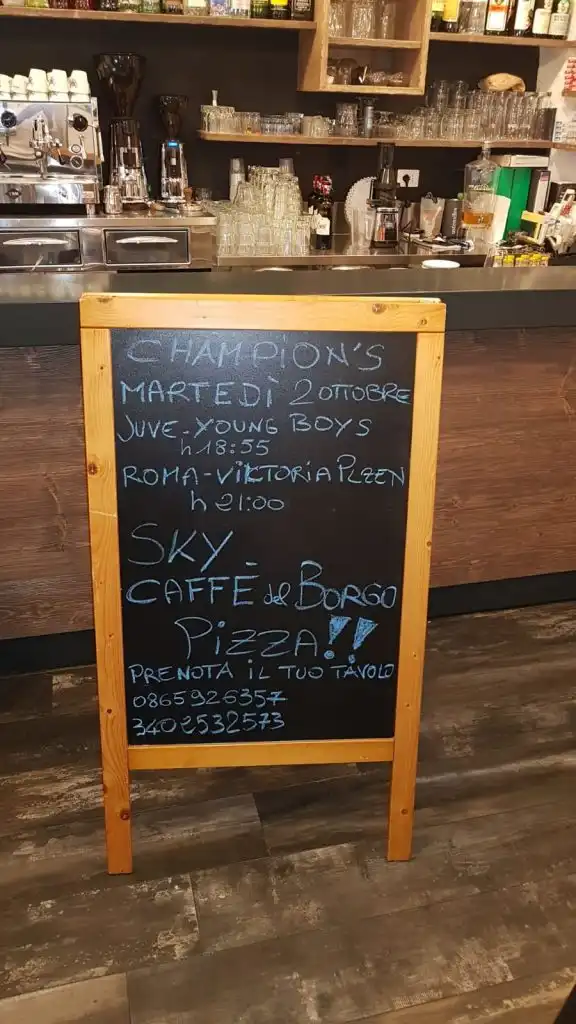 CHAMPION'S
MARTEDÌ 2 OTTOBRE
JUVE-YOUNG BOYS
h 18:55
ROMA-VIKTORIA PLZEN
h 21:00
SKY
CAFFÈ del BORGO
PIZZA!!
PRENOTA IL TUO TAVOLO
0865926357
3402532573